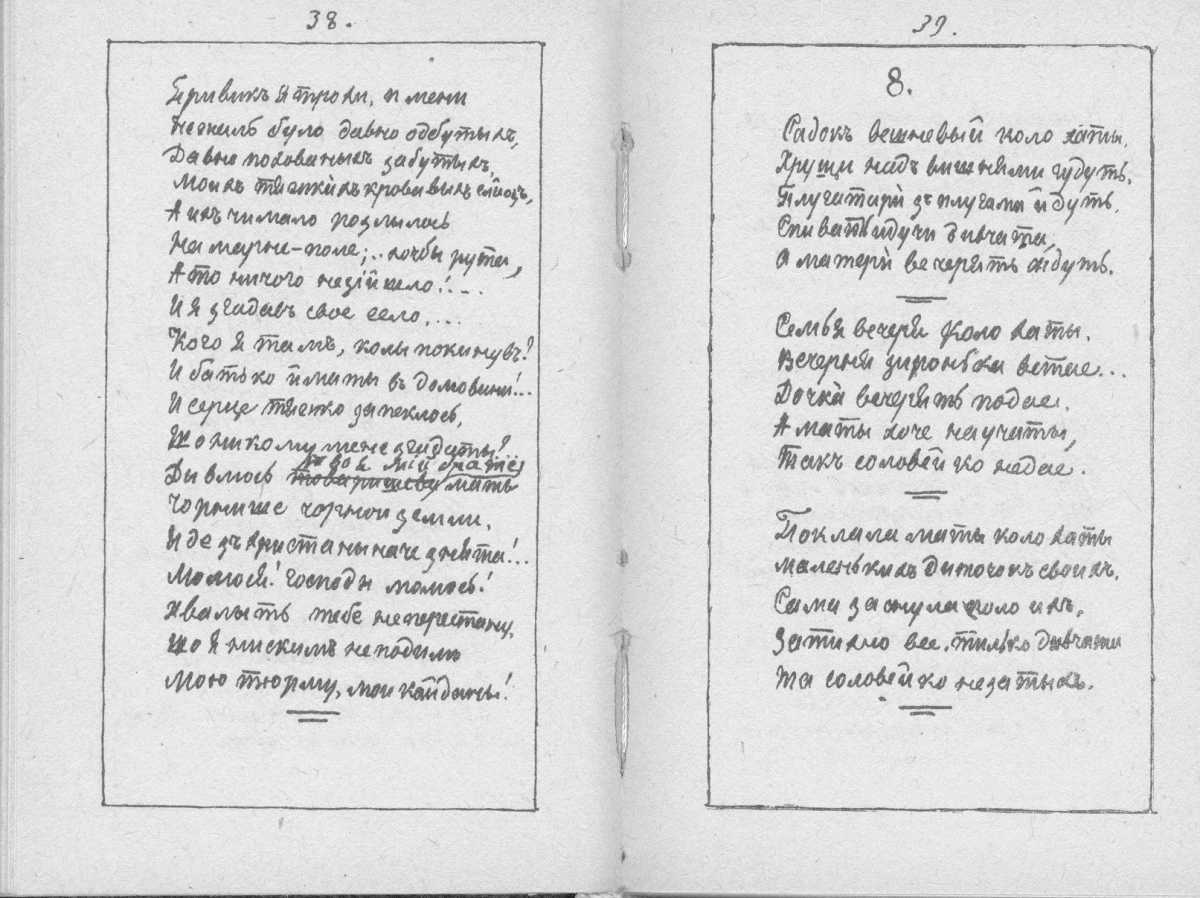 38.
Привикъ я трохи, и мени
Нежиль було давно одбутыхъ,
Давно похованыхъ забутыхъ,
Моихъ тяжкихъ кровавыхъ слiозъ,
А ихъ чимало розлылось
На марне-поле;.. хочбы рута,
А то ничого незiйшло!...
И я згадавъ свое село....
Кого я тамъ, колы покинувъ?
И батько й маты въ домовыни!...
И серце тяжко запеклось,
Що никому мене згадаты?..
по тобi мiй брате
Дывлюсь товаришеву мать
Чорнише чорнои земли,
Иде зъ христа ныначе знята!...
Молюся! Господы молюсь!
Хвалыть тебе неперестану,
Що я нискимъ неподилю
Мою тюрму, мои кайданы!
39.
8.
Садокъ вешневый коло хаты,
Хрущи надъ вишнями гудуть.
Плугатари зъ плугами йдуть,
Спивать идучи дивчата,
А матери вечерять ждуть.
Семья вечеря коло хаты.
Вечерня зиронька встае...
Дочка вечерять подае.
А маты хоче научаты,
Такъ соловейко недае.
Поклала маты коло хаты
Маленькихъ диточокъ своихъ,
Сама заснула коло ихъ.
Затихло все, тилько дивчата
Та соловейко незатыхъ.